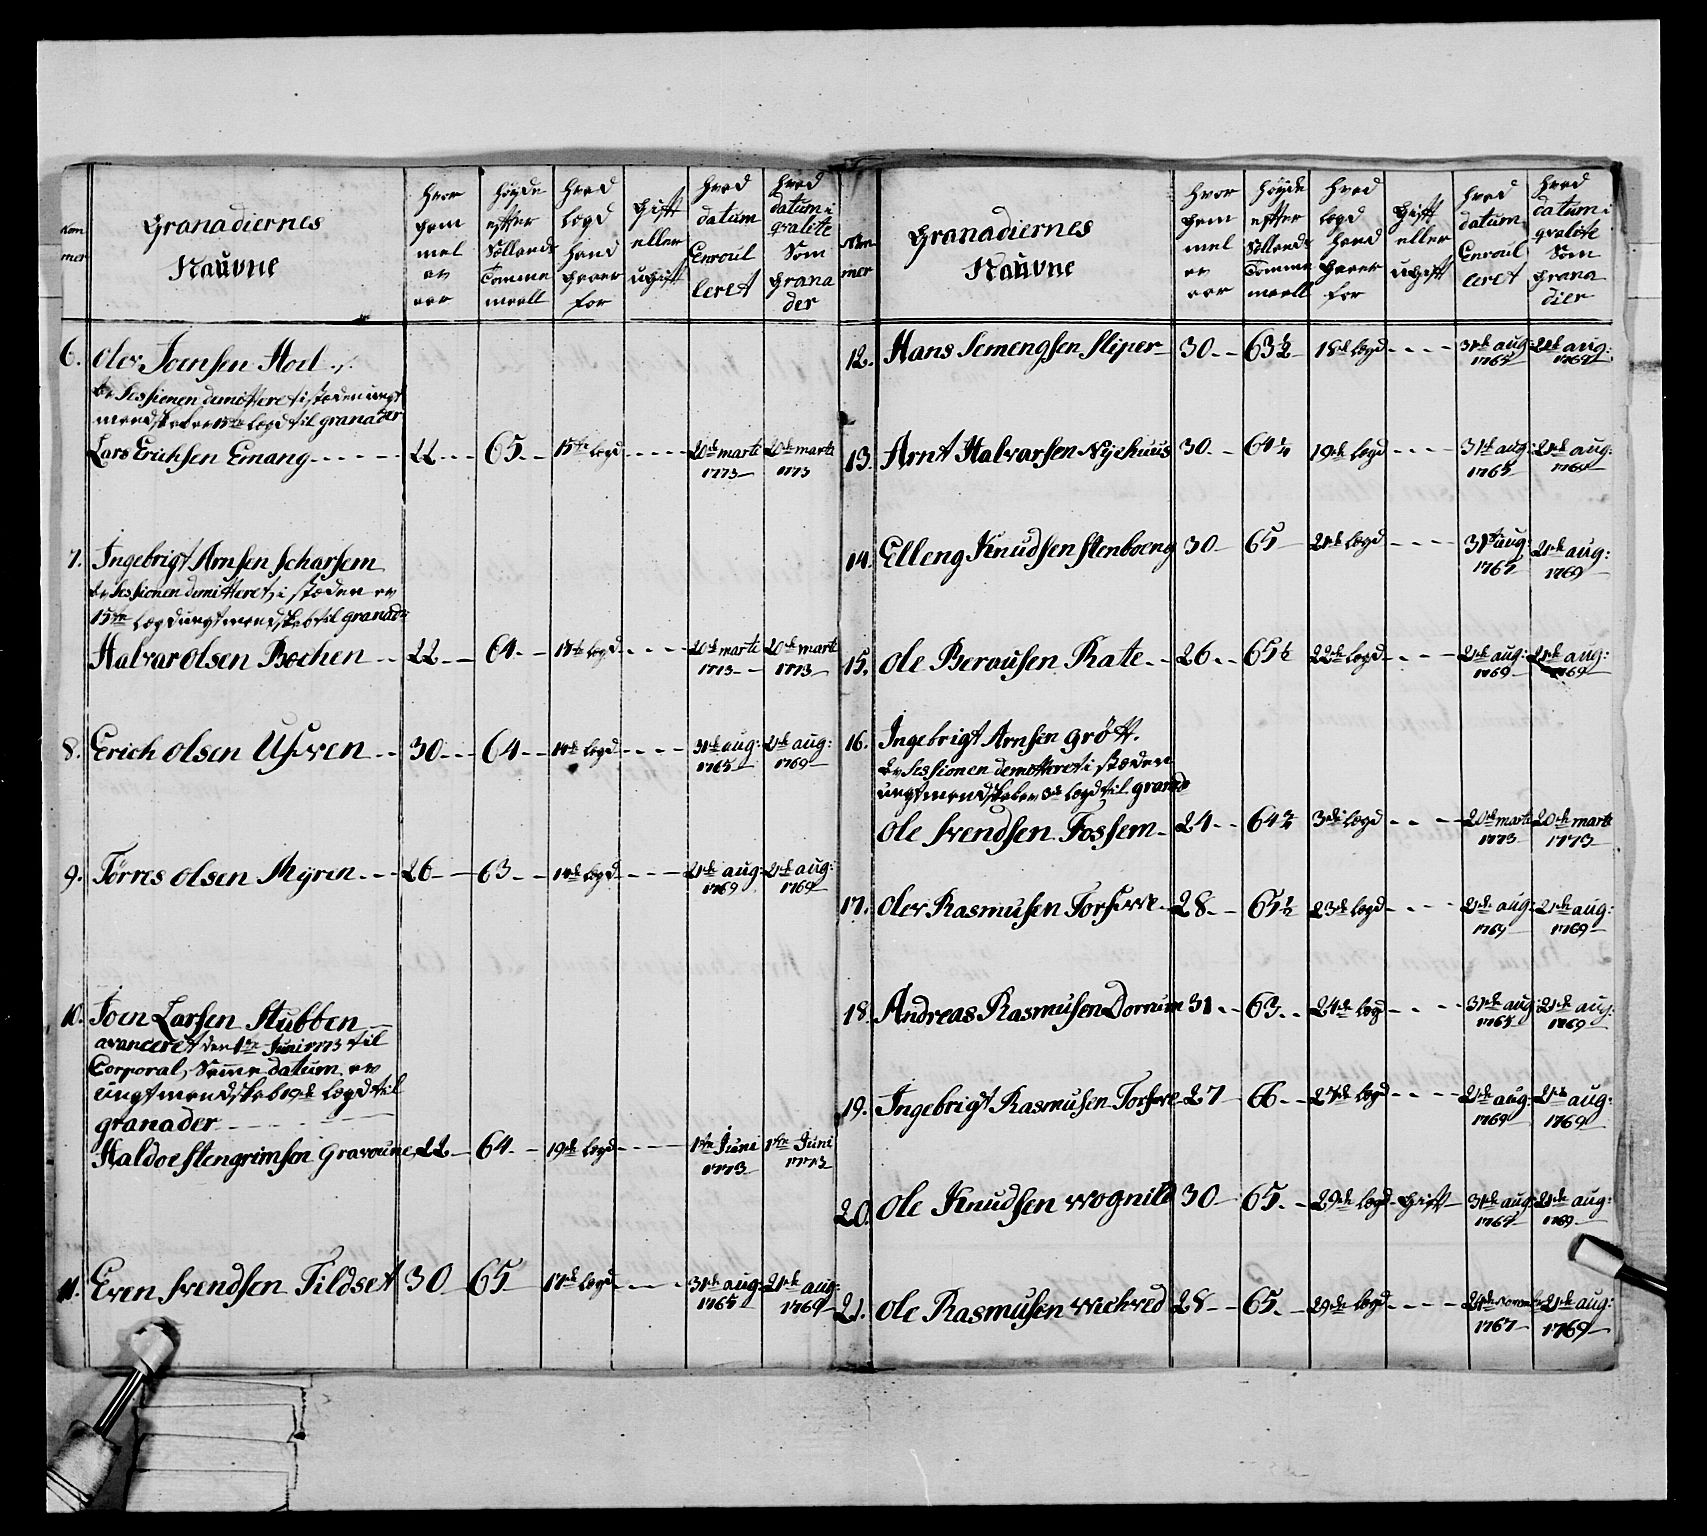 Num
mer
Granadiernes
Naüvne
hvor
gam
mel
er
aar
høyde
efter
Sællands
Tomme
maall
hvad
lægd
hand
giører
for
gift
eller
ugift
hvad
datum
Enroul
leret
hvad
datum i
qvalite
Som
grana
der
6. Oler Joensen Hoel
er Sessionen demitteret i stæden ungt
mandskab er 15te lægd til granader
Lars Erichsen Emang 22 65 15te lægd 20de marti 1773 20de marti 1773
7. Ingebrigt Arnsen Scharsem
er Sessionen demitteret, i stæden er
15te lægd ungt mandskab til granad:
Halvar Olsen Bochen 22 64 15te lægd 20de marti 1773 20de marti 1773
8. Erich Olsen 30 64 lægd 31de aug: 1765 21de aug: 1769
9. Tørres Olsen Myren 26 63 lægd 21de aug: 1769 21de aug: 1769
10. Joen Larsen Stubben
avanceret den 1te Juni 1773 til
Corporal, Samme datum er
ungt mandskab 19de lægd til
granader
Haldoe Stengrimsen Gravoune 22 64 19de lægd 1te Juni 1773 1te Juni 1773
11. Even Svendsen Fildset 30 65 17de lægd 31de aug: 1765 21de aug: 1769
Num
mer
Granadiernes
Naüvne
hvor
gam
mel
er
aar
høyde
efter
Sællands
Tomme
maall
hvad
lægd
hand
giører
for
gift
eller
ugift
hvad
datum
Enroul
leret
hvad
datum i
qvalite
Som
grana
dier
12. Hans Semengsen Sliper 30 63½ 18de lægd 31de aug: 1765 21de aug: 1769
13. Arnt Halvarsen Nyehuus 30 64¼ 19de lægd 31de aug: 1765 21de aug: 1769
14. Elleng Knudsen Stenboeng 30 65 21de lægd 31de aug: 21de aug: 1769
15. Ole Berausen Rate 26 65½ 22de lægd 21de aug: 1769 21de aug: 1769
16. Ingebrigt Arnsen Grøtt.
er Sessionen demitteret i stæden
ungt mandskab er 3de lægd til granad
Ole Svendsen Fossem 24 64½ 3de lægd 20de marti 1773 20de marti 1773
17. Oler Rasmusen 28 65½ 23de lægd 21de aug: 1769 21de aug: 1769
18. Andreas Rasmusen Dornum 31 63 24de lægd 31de aug: 1765 21de aug: 1769
19. Ingebrigt Rasmusen 27 66 27de lægd 21de aug: 1769 21de aug: 1769
20. Ole Knudsen Wognild 30 65 29de lægd gift 31de aug: 21de aug: 1769
21. Ole Rasmusen Wichved 28 65 29de lægd 1767 21de aug: 1769